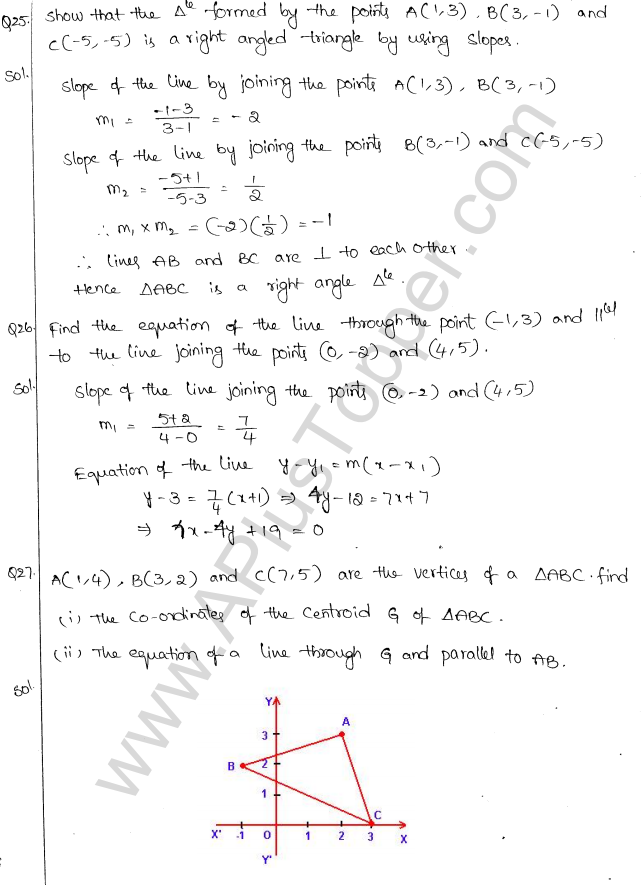 Q25. Show that the Δle formed by the points A(1,3), B(3,-1) and
C(-5,-5) is a right angled triangle by using slopes.
Sol. Slope of the line by joining the points A(1,3), B(3,-1)
m₁ = (-1-3)/(3-1) = -2
Slope of the line by joining the points B(3,-1) and C(-5,-5)
m₂ = (-5+1)/(-5-3) = 1/2
∴ m₁ × m₂ = (-2)(1/2) = -1
∴ lines AB and BC are ⊥ to each other.
Hence ΔABC is a right angle Δle.
Q26. Find the equation of the line through the point (-1,3) and ||lel
to the line joining the points (0,-2) and (4,5).
Sol. Slope of the line joining the points (0,-2) and (4,5)
m₁ = (5+2)/(4-0) = 7/4
Equation of the line y-y₁ = m(x-x₁)
y-3 = 7/4 (x+1) ⇒ 4y-12 = 7x+7
⇒ 7x-4y+19 = 0
Q27. A(1,4), B(3,2) and C(7,5) are the vertices of a ΔABC. find
(i) The co-ordinates of the centroid G of ΔABC.
(ii) The equation of a line through G and parallel to AB.
Sol.
Y
A
3
B 2
1
C
X' -1 O 1 2 3 X
Y'
www.APlusTopper.com